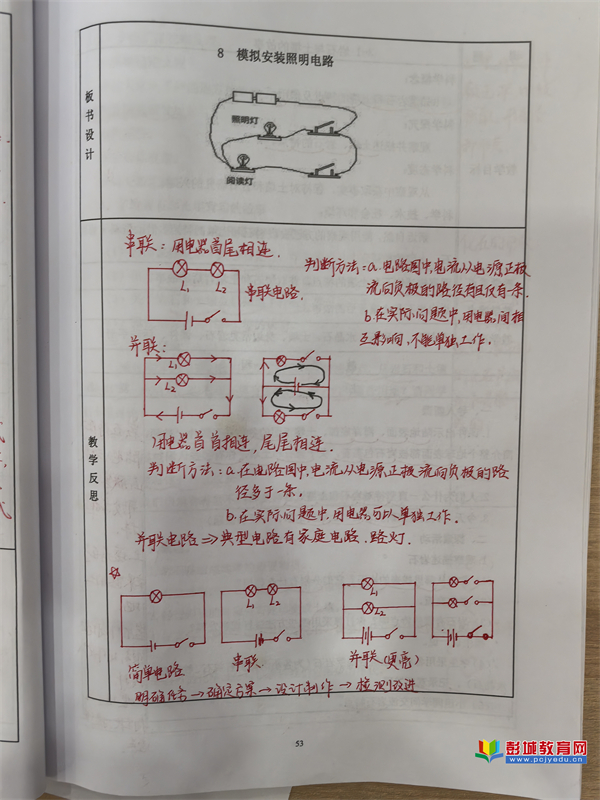 8 模拟安装照明电路
板书设计
照明灯
阅读灯
教学反思
串联：用电器首尾相连.
L₁ L₂
串联电路.
判断方法：a.电路图中,电流从电源正极
流向负极的路径有且仅有一条.
b.在实际问题中,用电器间相
互影响,不能单独工作.
并联：
L₁
L₂
用电器首首相连,尾尾相连.
判断方法：a.在电路图中,电流从电源正极流向负极的路
径多于一条.
b.在实际问题中,用电器可以单独工作.
并联电路⇒典型电路有家庭电路.路灯.
☆
L₁ L₂
L₁
L₂
简单电路
串联
并联(更亮)
明确任务→确定方案→设计制作→检测改进
53
彭城教育网
www.pcjyedu.cn